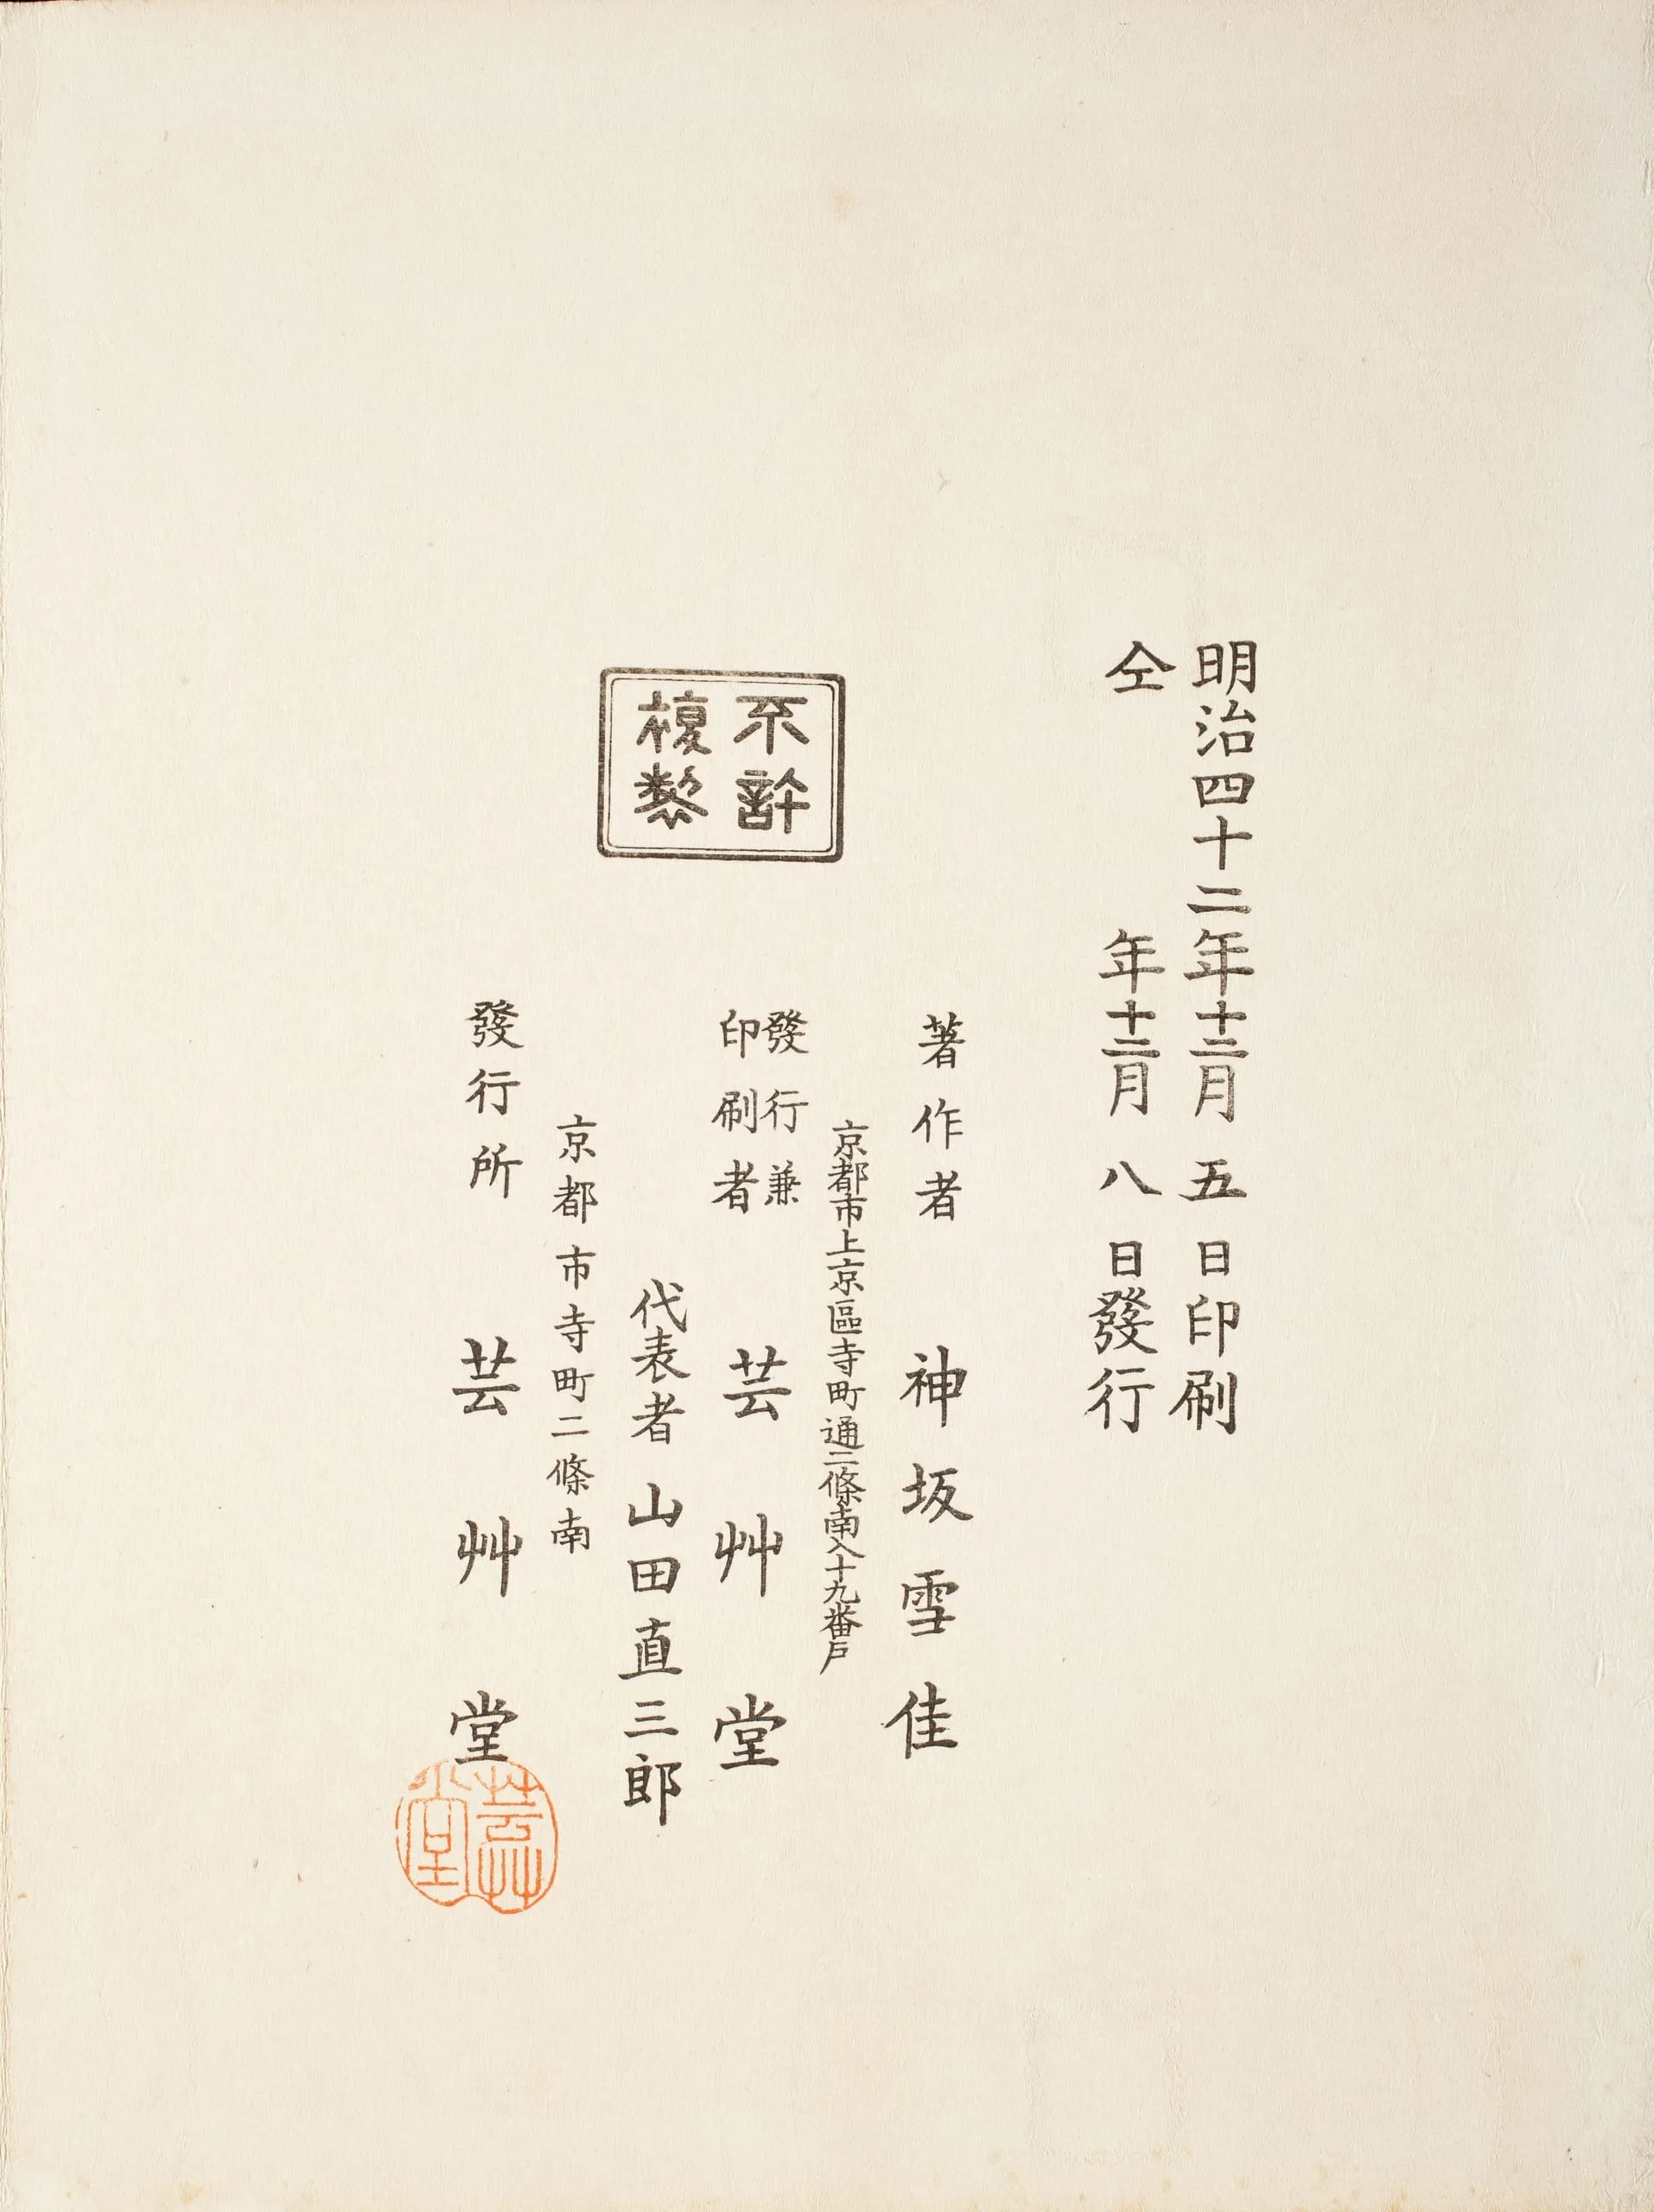 明治四十二年十二月五日印刷
仝年十二月八日發行
著作者 神坂雪佳
京都市上京區寺町通二條南入十九番戸
發行兼
印刷者 芸艸堂
代表者 山田直三郎
不許
複製
京都市寺町二條南
發行所 芸艸堂
芸艸
堂